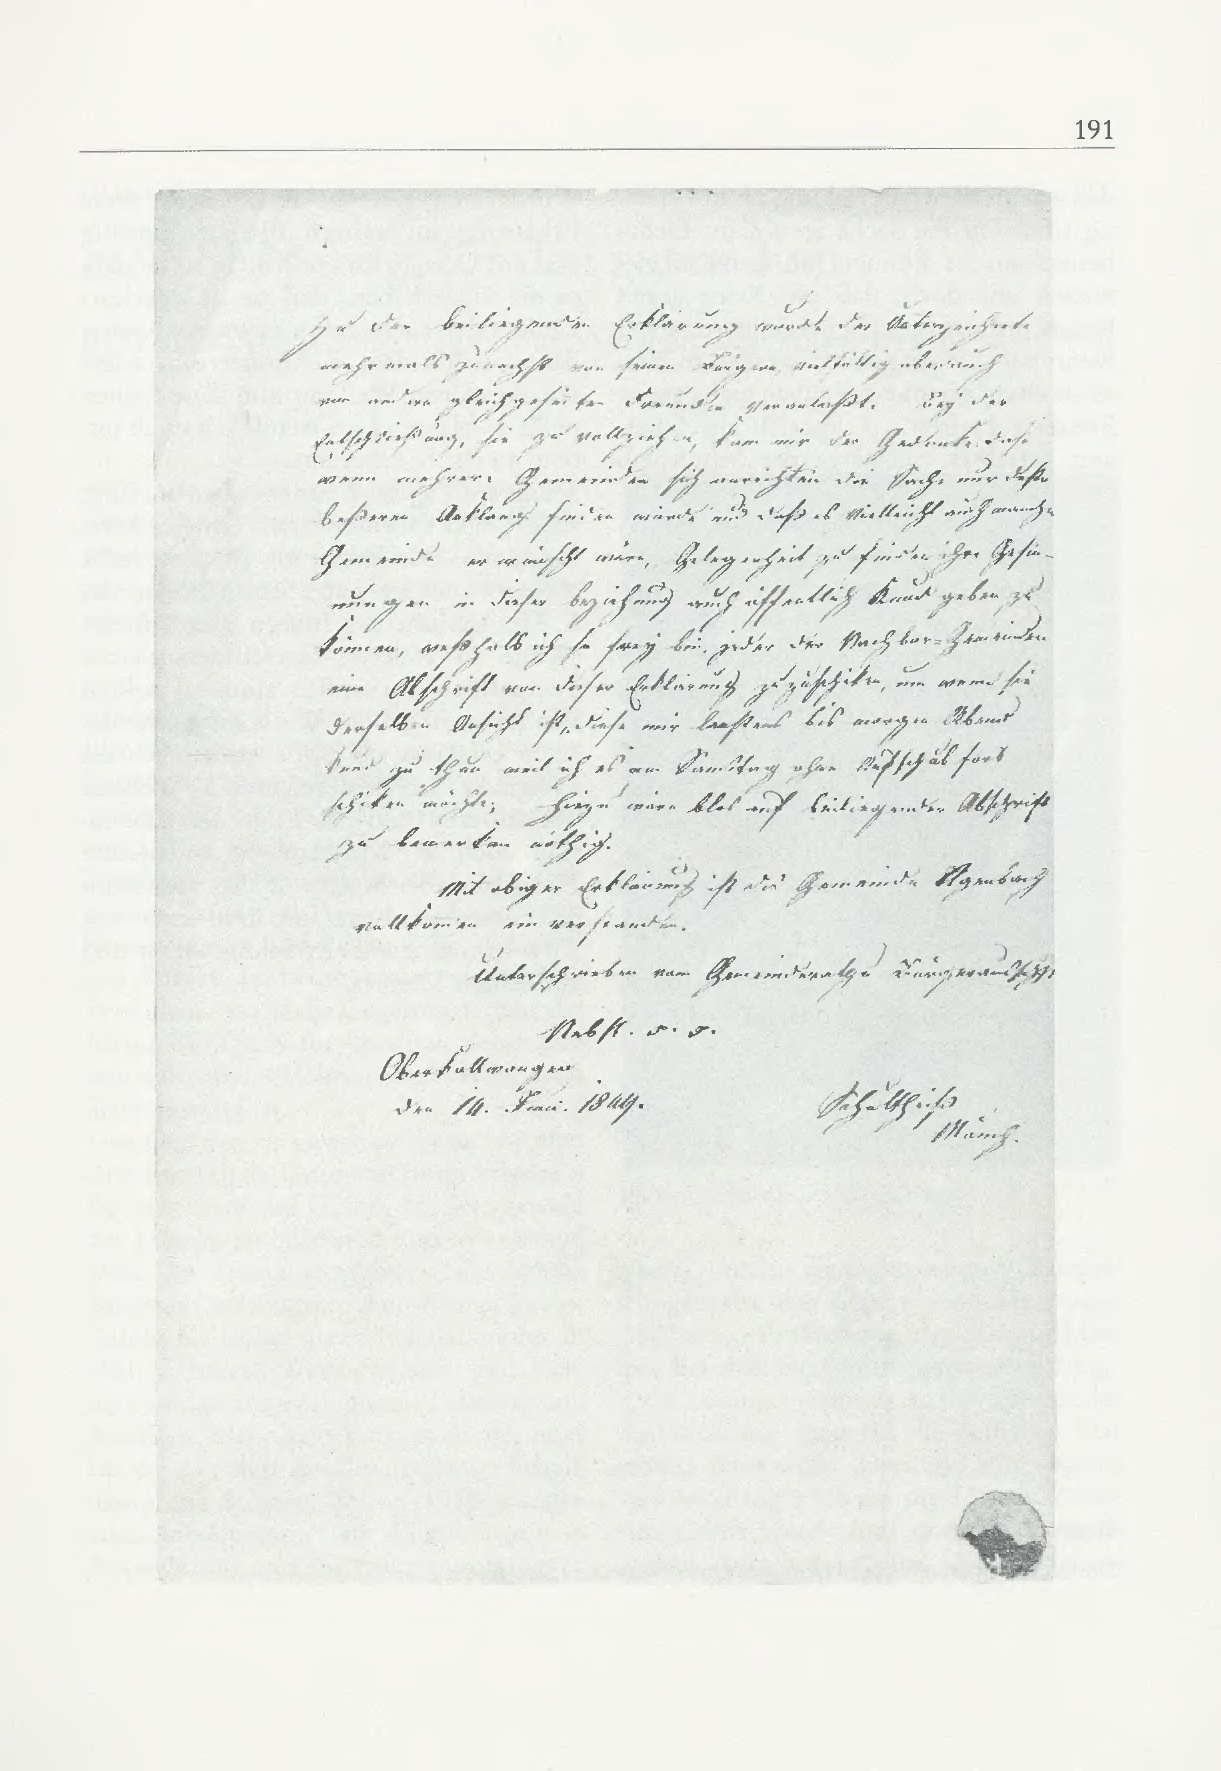 191
Zu der beiliegenden Erklärung wurde der Unterzeichnete
mehrmals zunächst von seinen Bürgern, vielfältig aber auch
von andern gleichgesinnten Freunden veranlaßt. Bey der
Entschließung, sie zu vollziehen, kam mir der Gedanke, daß
wenn mehrere Gemeinden sich anreihten die Sache nur desto
beßeren Anklang finden würde und daß es vielleicht auch mancher
Gemeinde erwünscht wäre, Gelegenheit zu finden ihre Gesin-
nungen in dieser beziehung auch öffentlich Kund geben zu
können, weßhalb ich so frey bin, jeder der Nachbar-Gemeinden
eine Abschrift von dieser Erklärung zuzuschiken, um wenn sie
derselben Ansicht ist, diese mir längstens bis morgen Abend
kund zu thun weil ich es am Samstag ohne Aufschub fort
schiken möchte; hiezu wäre blos auf beiliegender Abschrift
zu bemerken nöthig.
Mit obiger Erklärung ist die Gemeinde Agenbach
vollkommen einverstanden.
Unterschrieben vom Gemeinderath u Bürgerausschuß
Nebst. o. o.
Oberkollwangen
den 14. Juni. 1849.
Schultheiß
Münch.